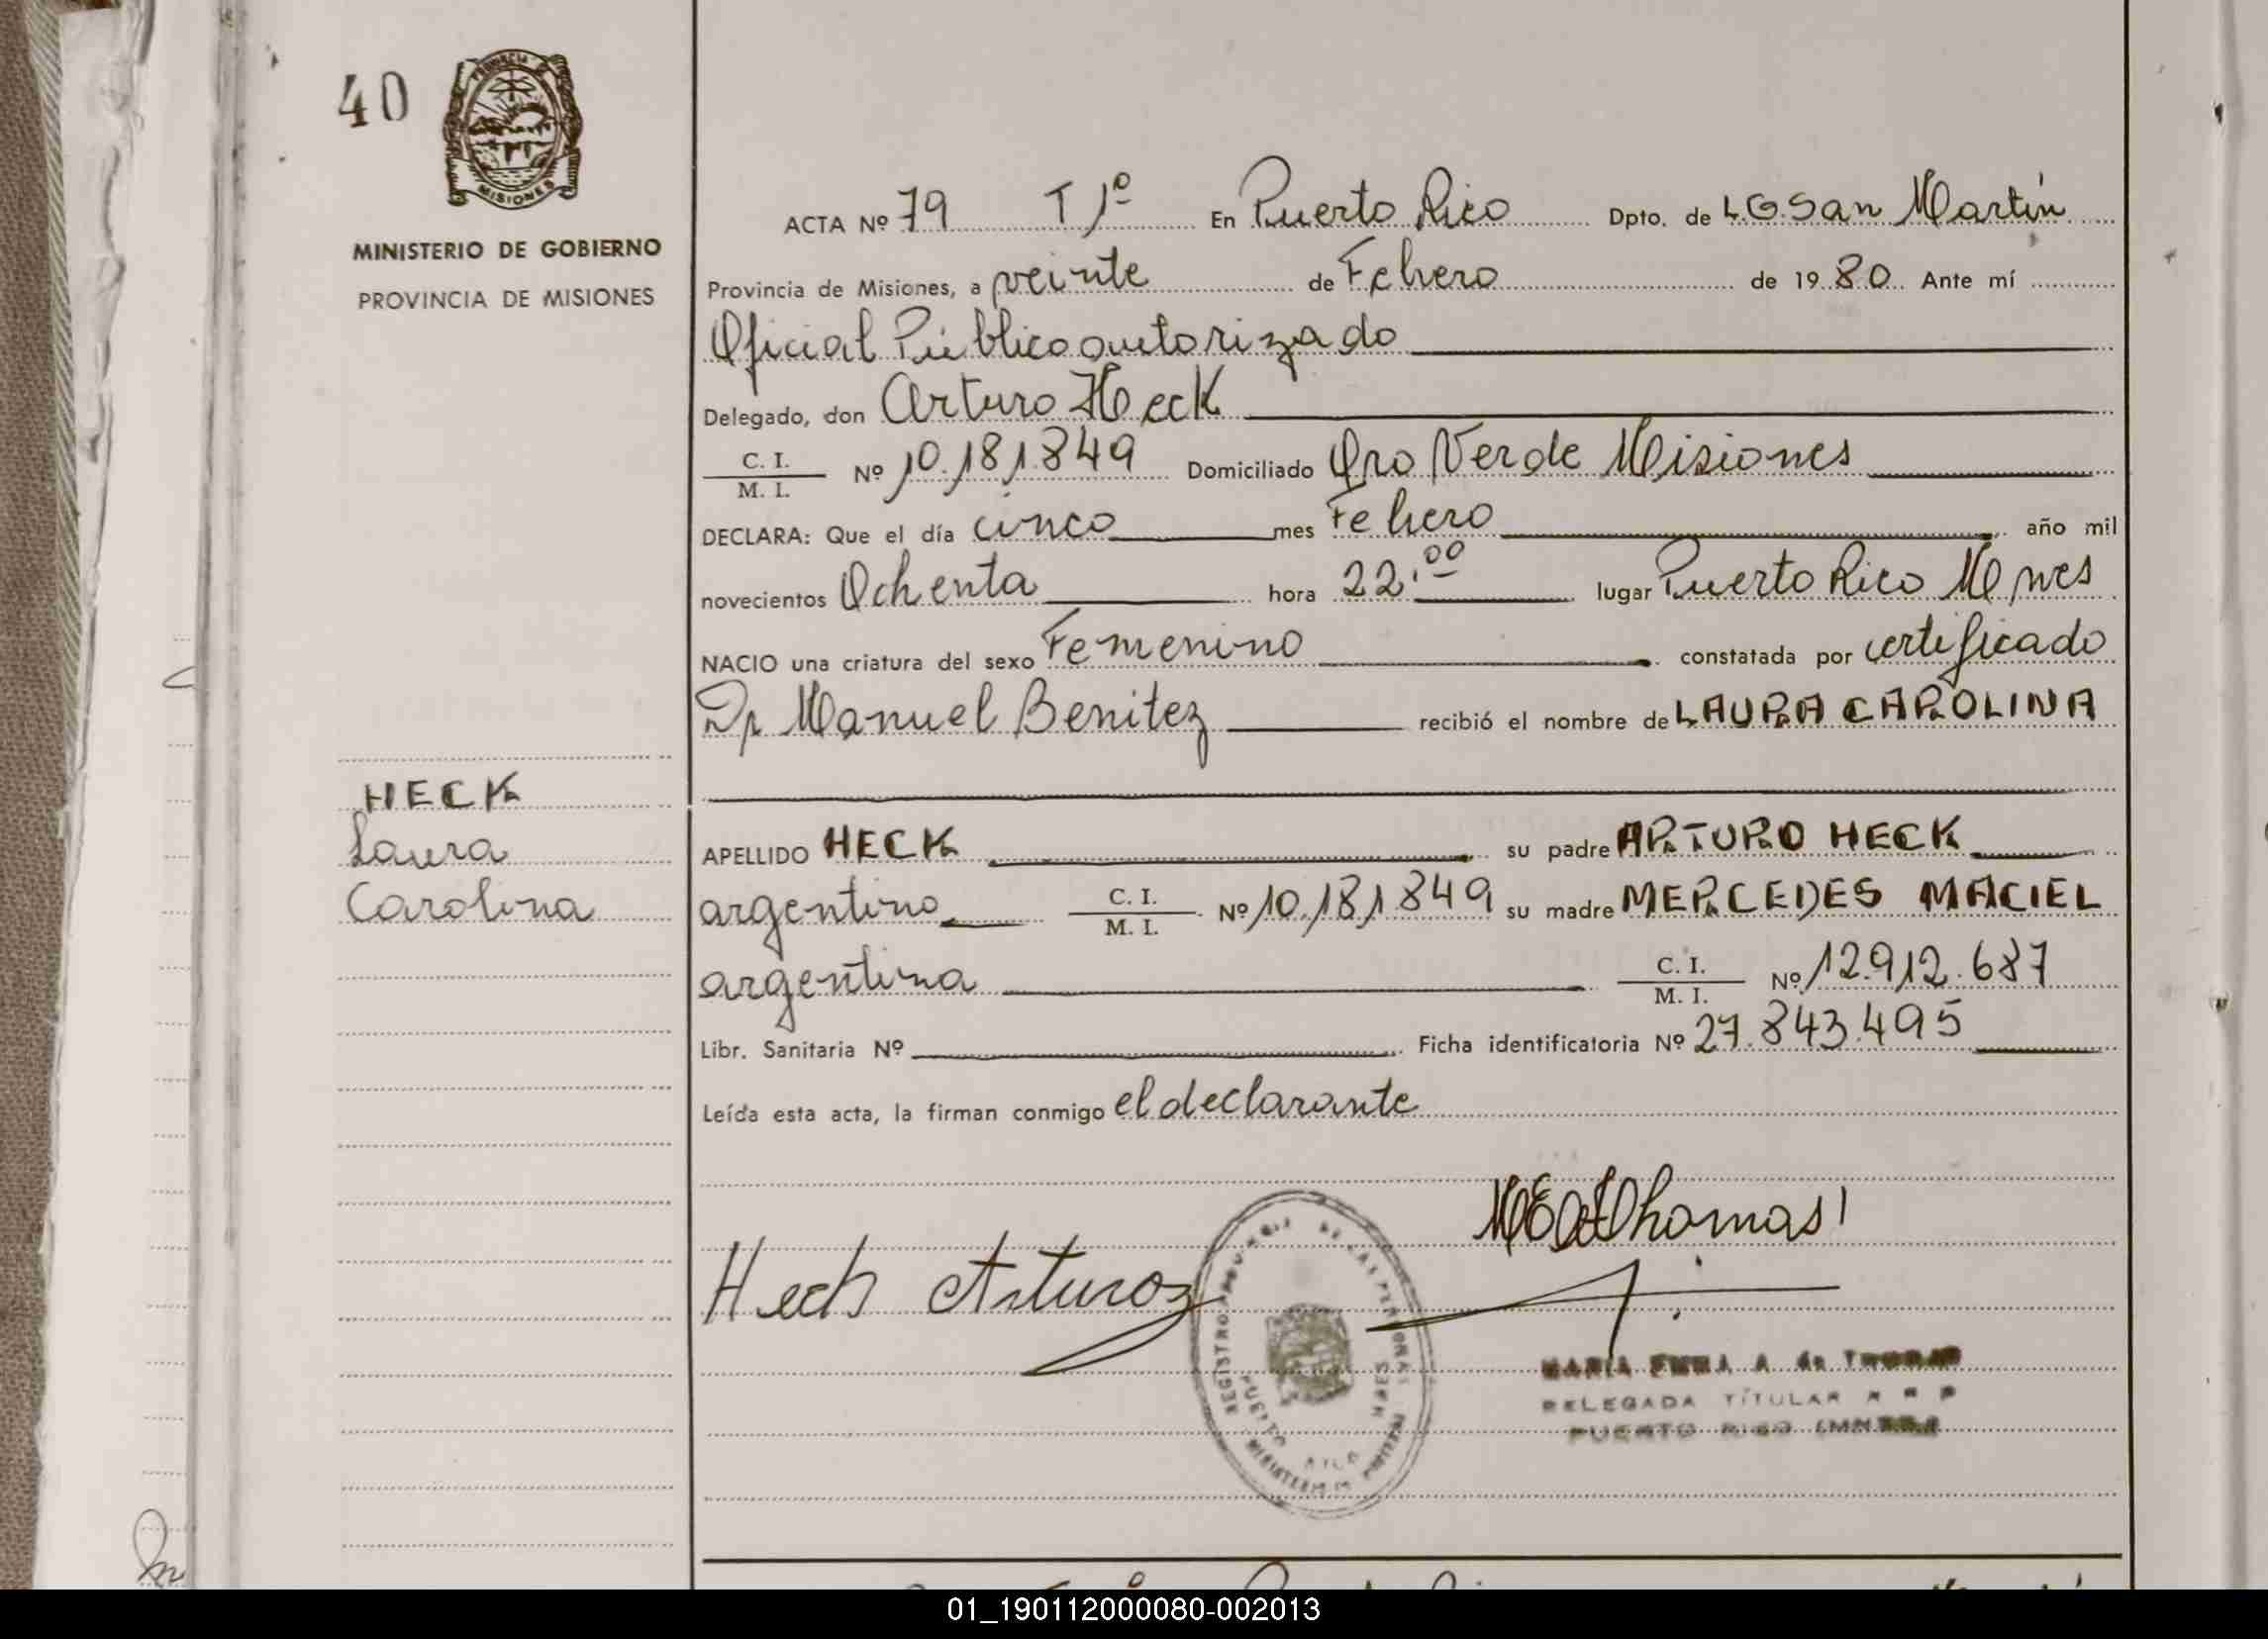 40
PROVINCIA DE
MISIONES
MINISTERIO DE GOBIERNO
PROVINCIA DE MISIONES
HECK
Laura
Carolina
ACTA Nº 79 T 1º En Puerto Rico Dpto. de L.G. San Martín
Provincia de Misiones, a veinte de Febrero de 1980 Ante mí
Oficial Público autorizado
Delegado, don Arturo Heck
C. I. / M. I. Nº 10.181.849 Domiciliado Oro Verde Misiones
DECLARA: Que el día cinco mes Febrero año mil
novecientos Ochenta hora 22.00 lugar Puerto Rico Mnes
NACIO una criatura del sexo Femenino constatada por certificado
Dr Manuel Benitez recibió el nombre de LAURA CAROLINA
APELLIDO HECK su padre ARTURO HECK
argentino C. I. / M. I. Nº 10.181.849 su madre MERCEDES MACIEL
argentina C. I. / M. I. Nº 12.912.687
Libr. Sanitaria Nº Ficha identificatoria Nº 27.843.495
Leída esta acta, la firman conmigo el declarante
Thomas
Heck Arturo
REGISTRO DE LAS PERSONAS
PUERTO RICO
MARIA EMMA A de THOMAS
DELEGADA TITULAR
PUERTO RICO
01_190112000080-002013